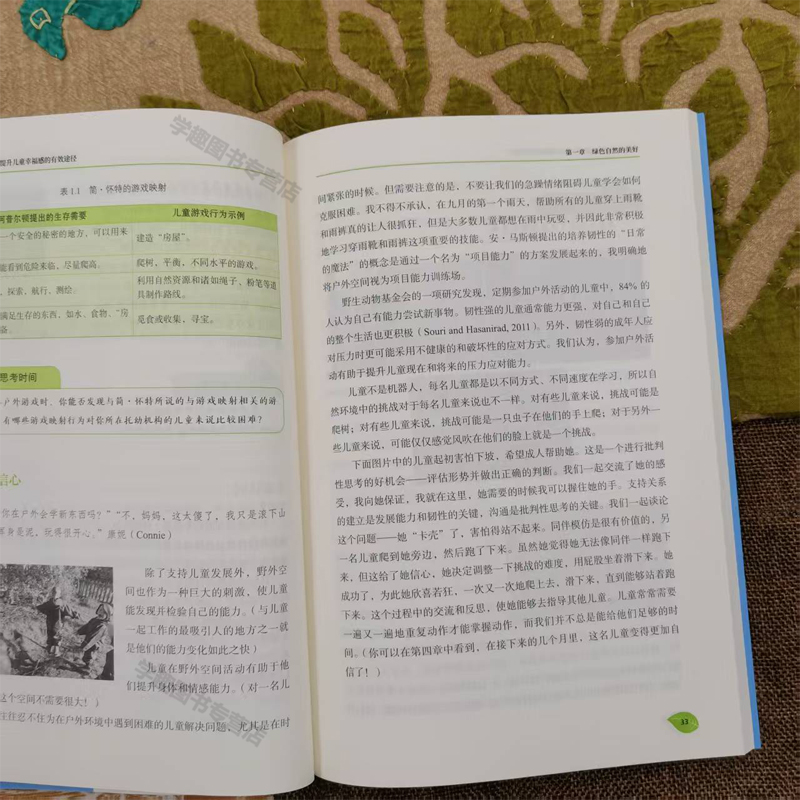 提升儿童幸福感的有效途径
表 1.1 简·怀特的游戏映射
阿普尔顿提出的生存需要 儿童游戏行为示例
一个安全的秘密的地方，可以用来 建造“房屋”。
能看到危险来临，尽量爬高。 爬树，平衡，不同水平的游戏。
，探索，航行，测绘。 利用自然资源和诸如绳子、粉笔等道
具制作路线。
满足生存的东西，如水、食物、“房 觅食或收集，寻宝。
器。
思考时间
户外游戏时，你能否发现与简·怀特所说的与游戏映射相关的游
有哪些游戏映射行为对你所在托幼机构的儿童来说比较困难？
信心
你在户外会学新东西吗？”“不，妈妈，这太傻了，我只是滚下山
浑身是泥，玩得很开心。”康妮（Connie）
除了支持儿童发展外，野外空
间也作为一种巨大的刺激，使儿童
能发现并检验自己的能力。（与儿童
一起工作的最吸引人的地方之一就
是他们的能力变化如此之快）
儿童在野外空间活动有助于他
们提升身体和情感能力。（对一名儿
这个空间不需要很大！）
往往忍不住为在户外环境中遇到困难的儿童解决问题，尤其是在时
第一章 绿色自然的美好
间紧张的时候。但需要注意的是，不要让我们的急躁情绪阻碍儿童学会如何
克服困难。我不得不承认，在九月的第一个雨天，帮助所有的儿童穿上雨靴
和雨裤真的让人很抓狂，但是大多数儿童都想在雨中玩耍，并因此非常积极
地学习穿雨靴和雨裤这项重要的技能。安·马斯顿提出的培养韧性的“日常
的魔法”的概念是通过一个名为“项目能力”的方案发展起来的，我明确地
将户外空间视为项目能力训练场。
野生动物基金会的一项研究发现，定期参加户外活动的儿童中，84% 的
人认为自己有能力尝试新事物。韧性强的儿童通常能力更强，对自己和自己
的整个生活也更积极（Souri and Hasanirad, 2011）。另外，韧性弱的成年人应
对压力时更可能采用不健康的和破坏性的应对方式。我们认为，参加户外活
动有助于提升儿童现在和将来的压力应对能力。
儿童不是机器人，每名儿童都是以不同方式、不同速度在学习，所以自
然环境中的挑战对于每名儿童来说也不一样。对有些儿童来说，挑战可能是
爬树；对有些儿童来说，挑战可能是一只虫子在他们的手上爬；对于另外一
些儿童来说，可能仅仅感觉风吹在他们的脸上就是一个挑战。
下面图片中的儿童起初害怕下坡，希望成人帮助她。这是一个进行批判
性思考的好机会——评估形势并做出正确的判断。我们一起交流了她的感
受，我向她保证，我就在这里，她需要的时候我可以握住她的手。支持关系
的建立是发展能力和韧性的关键，沟通是批判性思考的关键。我们一起谈论
这个问题——她“卡壳”了，害怕得站不起来。同伴模仿是很有价值的，另
一名儿童爬到她旁边，然后跑了下来。虽然她觉得她无法像同伴一样跑下
来，但这给了她信心，她决定调整一下挑战的难度，用屁股坐着滑下来。她
成功了，为此她欣喜若狂，一次又一次地爬上去，滑下来，直到能够站着跑
下来。这个过程中的交流和反思，使她能够去指导其他儿童。儿童常常需要
一遍又一遍地重复动作才能掌握动作，而我们并不总是能给他们足够的时
间。（你可以在第四章中看到，在接下来的几个月里，这名儿童变得更加自
信了！）
33
学趣图书专营店
学趣图书专营店